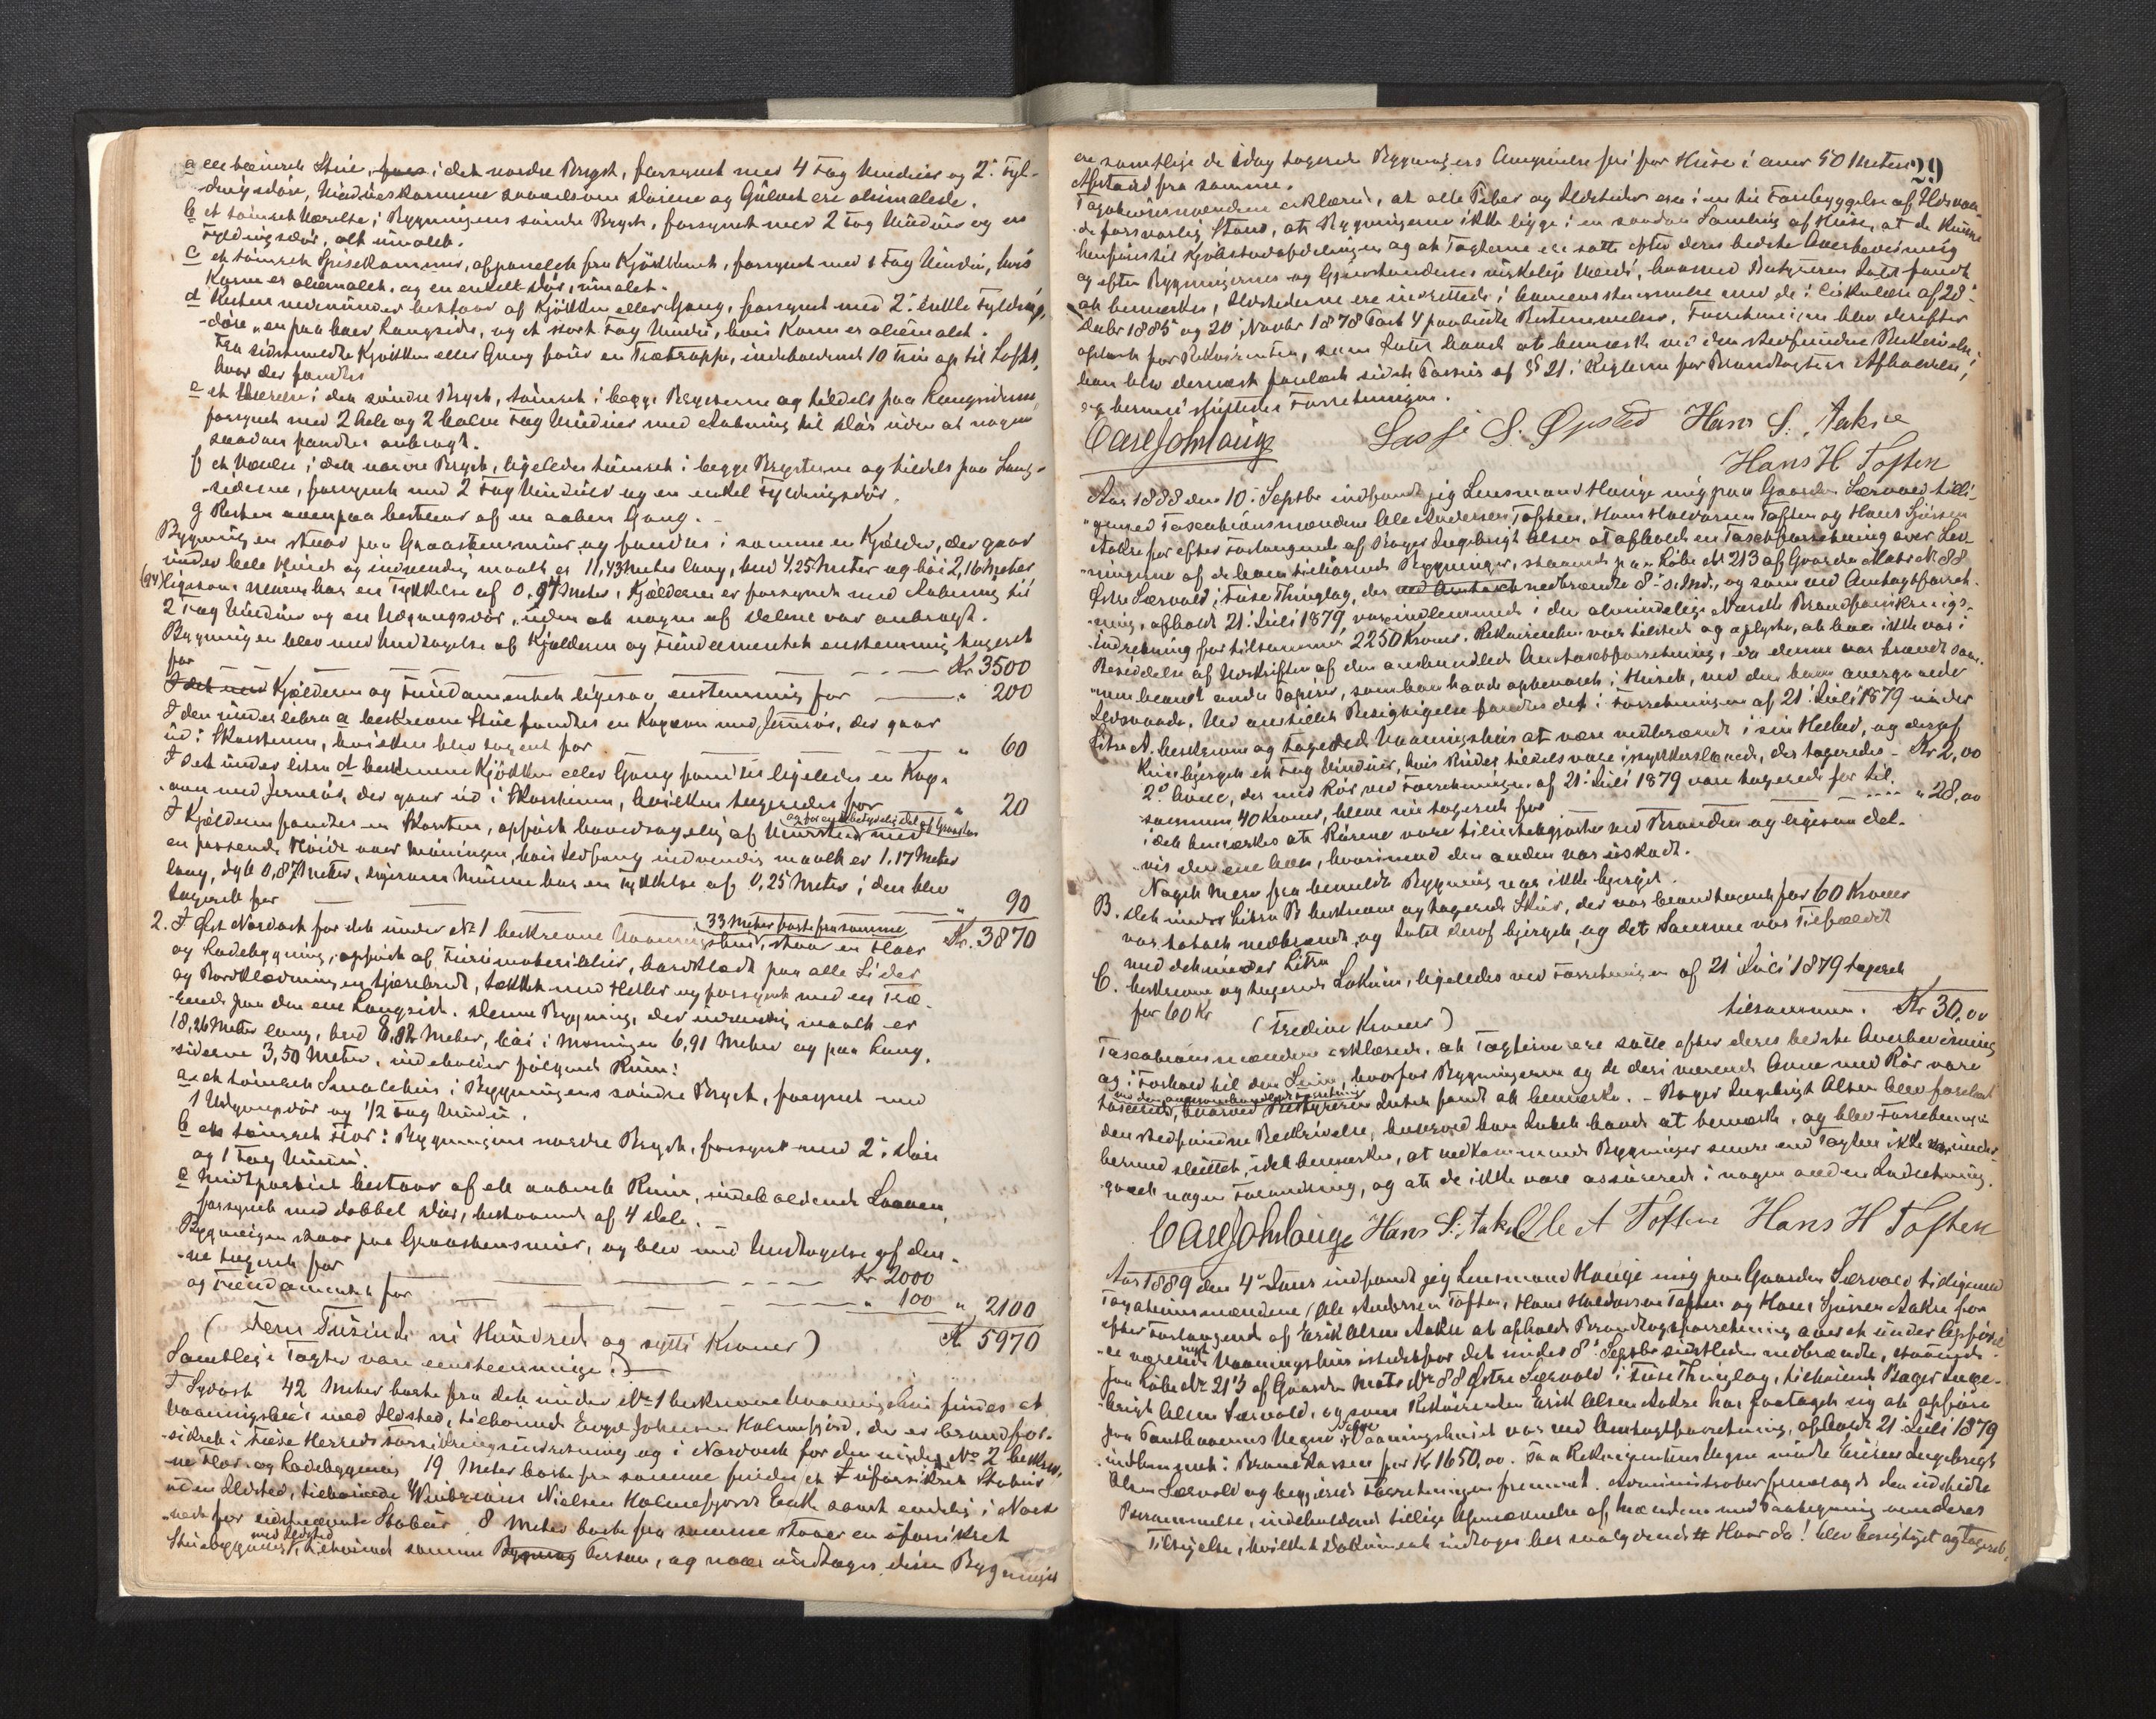 a en tømret Stue, i det nordre Bryst, forsynet med 4 Fag Vinduer og 2de Fyl-
dingsdøre, Vindueskarmene saavelsom Dørene og Gulvet ere oliemalede.
b et tømret Værelse i Bygningens søndre Bryst, forsynet med 2 Fag Vinduer og en
Fyldingsdør, alt umalet.
c et tømret Spisekammer, afpanelet fra Kjøkkenet, forsynet med 1 Fag Vindu, hvis
Karm er oliemalet, og en enkelt Dør, umalet.
d Resten nedenunder bestaar af Kjøkken eller Gang, forsynet med 2de enkle Fyldings-
døre, en paa hver Langside, og et stort Fag Vindu, hvis Karm er oliemalet.
Fra sidstmeldte Kjøkken eller Gang fører en Trætrappe, indeholdende 10 Trin op til Loftet,
hvor der fandtes
e et Værelse i den søndre Bryst, tømret i begge Brysterne og tildels paa Langsiderne,
forsynet med 2 hele og 2 halve Fag Vinduer med Aabning til Dør uden at nogen
saadan fandtes anbragt.
f et Værelse i det nordre Bryst, ligeledes tømret i begge Brysterne og tildels paa Lang-
siderne, forsynet med 2 Fag Vinduer og en enkel Fyldingsdør.
g Resten ovenpaa bestaar af en aaben Gang.
Bygningen staar paa Graastensmur og fandtes i samme en Kjælder, der gaar
under hele Huset og indvendig maalt er 11,43 Meter lang, bred 4,25 Meter og høi 2,16 Meter
ligesom Muren har en Tykkelse af 0,94 Meter. Kjælderen er forsynet med Aabning til
2 Fag Vinduer og en Udgangsdør, uden at nogen af Delene var anbragt.
Bygningen blev med Undtagelse af Kjælderen og Fundamentet enstemmig taxeret
for Kr. 3500
Kjælderen og Fundamentet ligesaa enstemmig for " 200
I den under litra a beskrevne Stue fandtes en Kogeovn med Jernrør, der gaar
ud i Skorstenen, hvilken blev taxeret for " 60
I det under litra d beskrevne Kjøkken eller Gang fandtes ligeledes en Kog-
ovn med Jernrør, der gaar ud i Skorstenen, hvilken taxeredes for " 20
I Kjælderen fandtes en Skorsten, opført hovedsagelig af Mursten med
en passende Høide over Møningen, hvis Ildsang indvendig maalt er 1,17 Meter
lang, dyb 0,87 Meter, ligesom Muren har en Tykkelse af 0,25 Meter; den blev
taxeret for " 90
2. I Øst Nordost for det under No 1 beskrevne Vaaningshus, 33 Meter borte fra samme, staar en Flor Kr. 3870
og Ladebygning, opført af Furumaterialier, bordklædt paa alle Sider
og Bordklædningen tjærebredt, tækket med Heller og forsynet med en Træ-
rende paa den ene Langside. Denne Bygning, der udvendig maalt er
18,26 Meter lang, bred 8,82 Meter, høi i Møningen 6,91 Meter og paa Lang-
siderne 3,50 Meter, indeholder følgende Rum:
a et tømret Smalehus i Bygningens søndre Bryst, forsynet med
1 Udgangsdør og 1/2 Fag Vindu.
b et tømret Flor i Bygningens nordre Bryst, forsynet med 2de Døre
og 1 Fag Vindu.
c Midtpartiet bestaar af et aabent Rum, indeholdende Laaven,
forsynet med dobbel Dør, bestaaende af 4 Dele.
Bygningen staar paa Graastensmur, og blev med Undtagelse af den-
ne taxeret for Kr 2000
og Fundamentet for " 100 " 2100
(Fem Tusinde ni Hundrede og sytti Kroner) Kr 5970
Samtlige Taxter vare eenstemmige.
I Sydost 42 Meter borte fra det under No 1 beskrevne Vaaningshus findes et
Vaaningshus med Ildsted, tilhørende Johnsen Holmefjord, der er brandfor-
sikret i Fuse Herreds Forsikringsindretning og i Nordvest for den under No 2 beskrev-
ne Flor- og Ladebygning 19 Meter borte fra samme findes et uforsikret Stabur
uden Ildsted, tilhørende Nielsen Holmefjords Enke samt endelig i Nord-
vest for sidstnævnte Stabur 8 Meter borte fra samme staar en uforsikret
Stuebygning med Ildsted, tilhørende samme Person, og naar undtages disse Bygninger
29
ere samtlige de idag taxerede Bygningers Omgivelse fri for Huse i over 50 Meters
Afstand fra samme.
Taxationsmændene erklærede, at alle Piber og Ildsteder ere i en til Forebyggelse af Ildsvaa-
de forsvarlig Stand, at Bygningerne ikke ligge i en saadan Samling af Huse, at de kunne
henføres til Kjøbstadafdelingen og at Taxterne ere satte efter deres bedste Overbevisning
og efter Bygningernes og Gjenstandenes virkelige Værdi, hvorved Bestyreren Intet fandt
at bemærke, Ildstederne ere indrettede i Overensstemmelse med de i Cirkulære af 28de
Debr 1885 og 20de Novbr 1878 Post 4 paabudte Bestemmelser. Forretningen blev derefter
oplæst for Rekvirenten, som Intet havde at bemærke ved den stedfundne Beskrivelse;
han blev dernæst forelæst sidste Passus af § 21 i Reglerne for Brandtaxters Afholdelse,
og hermed sluttedes Forretningen.
Carl Joh. Hauge Lasse S. Øpsted Hans S. Aakre
Hans H Toften
Aar 1888 den 10de Septbr indfandt jeg Lensmand Hauge mig paa Gaarden Særvold tilli-
gemed Taxationsmændene Ole Andersen Toften, Hans Halvorsen Toften og Hans Sjursen
Aakre for efter Forlangende af Bager Ingebrigt Olsen at afholde en Taxtforretning over Lev-
ningerne af de ham tilhørende Bygninger, staaende paa Løbe No 213 af Gaarden Matr. No 88
Østre Særvold i Fuse Thinglag, der nedbrændte 8de ds., og som ved Omtaxtforret-
ning, afholdt 21de Juli 1879, var indlemmede i den almindelige Norske Brandforsikrings-
indretning for tilsammen 2250 Kroner. Rekvirenten var tilstede og oplyste, at han ikke var i
Besiddelse af Udskriften af den omhandlede Omtaxtforretning, da denne var brændt sam-
men blandt andre Papirer, som han havde opbevaret i Huset, ved den ham overgaaede
Ildsvaade. Ved anstillet Besigtigelse fandtes det i Forretningen af 21de Juli 1879 under
Litra A. beskrevne og taxerede Vaaningshus at være nedbrændt i sin Helhed, og deraf
kun bjerget et Fag Vinduer, hvis Ruder tildels vare istykkerslaaede, der taxeredes - Kr. 2,00
2de Ovne, der med Rør ved Forretningen af 21de Juli 1879 vare taxerede for til-
sammen 40 Kroner, bleve nu taxerede for " 28,00
idet bemærkes at Rørene vare tilintetgjorte ved Branden og ligesaa del-
vis den ene Ovn, hvorimod den anden var uskadt.
Noget Mere fra bemeldte Bygning var ikke bjerget.
B. Det under Litra B beskrevne og taxerede Skur, der var brandtaxeret for 60 Kroner
var totalt nedbrændt, og Intet deraf bjerget, og det Samme var Tilfældet
med det under Litra
C. beskrevne og taxerede Lokum, ligeledes ved Forretningen af 21de Juli 1879 taxeret
for 60 Kr tilsammen. Kr 30,00
(Tredive Kroner)
Taxationsmændene erklærede, at Taxterne ere satte efter deres bedste Overbevisning
og i Forhold til den Sum, hvorfor Bygningerne og de deri værende Ovne med Rør vare
taxerede ved den ommeldte Forretning, hvorved Bestyreren Intet fandt at bemærke. - Bager Ingebrigt Olsen blev forelæst
den stedfundne Beskrivelse, hvorved han Intet havde at bemærke, og blev Forretningen
hermed sluttet, idet bemærkes, at vedkommende Bygninger senere end Taxten ikke under-
gaaet nogen Forandring, og at de ikke vare assurerede i nogen anden Indretning.
Carl Joh. Hauge Hans S. Aakre Ole A Toften Hans H Toften
Aar 1889 den 4de indfandt jeg Lensmand Hauge mig paa Gaarden Særvold tilligemed
Taxationsmændene Ole Andersen Toften, Hans Halvorsen Toften og Hans Sjursen Aakre for
efter Forlangende af Erik Olsen Aakre at afholde Brandtaxtforretning over et under Opførel-
se værende nyt Vaaningshus istedetfor det under 8de Septbr sidstleden nedbrændte, staaende
paa Løbe No 213 af Gaarden Matr. No 88 Østre Særvold i Fuse Thinglag, tilhørende Bager Inge-
brigt Olsen Særvold, og som Rekvirenten Erik Olsen Aakre har paataget sig at opføre
paa Panthavernes Vegne. Vaaningshuset var ved Omtaxtforretning, afholdt 21de Juli 1879
indlemmet i Brandkassen for Kr 1650,00. Paa Rekvirentens Vegne mødte Eieren Ingebrigt
Olsen Særvold og begjærede Forretningen fremmet. Administrator fremlagde den udstedte
Berammelse, indeholdende tillige Opnævnelse af Mændene med Paategning om deres
Tilsigelse, hvilket Dokument indtages her saalydende # Hvorda! blev besigtiget og taxeret,